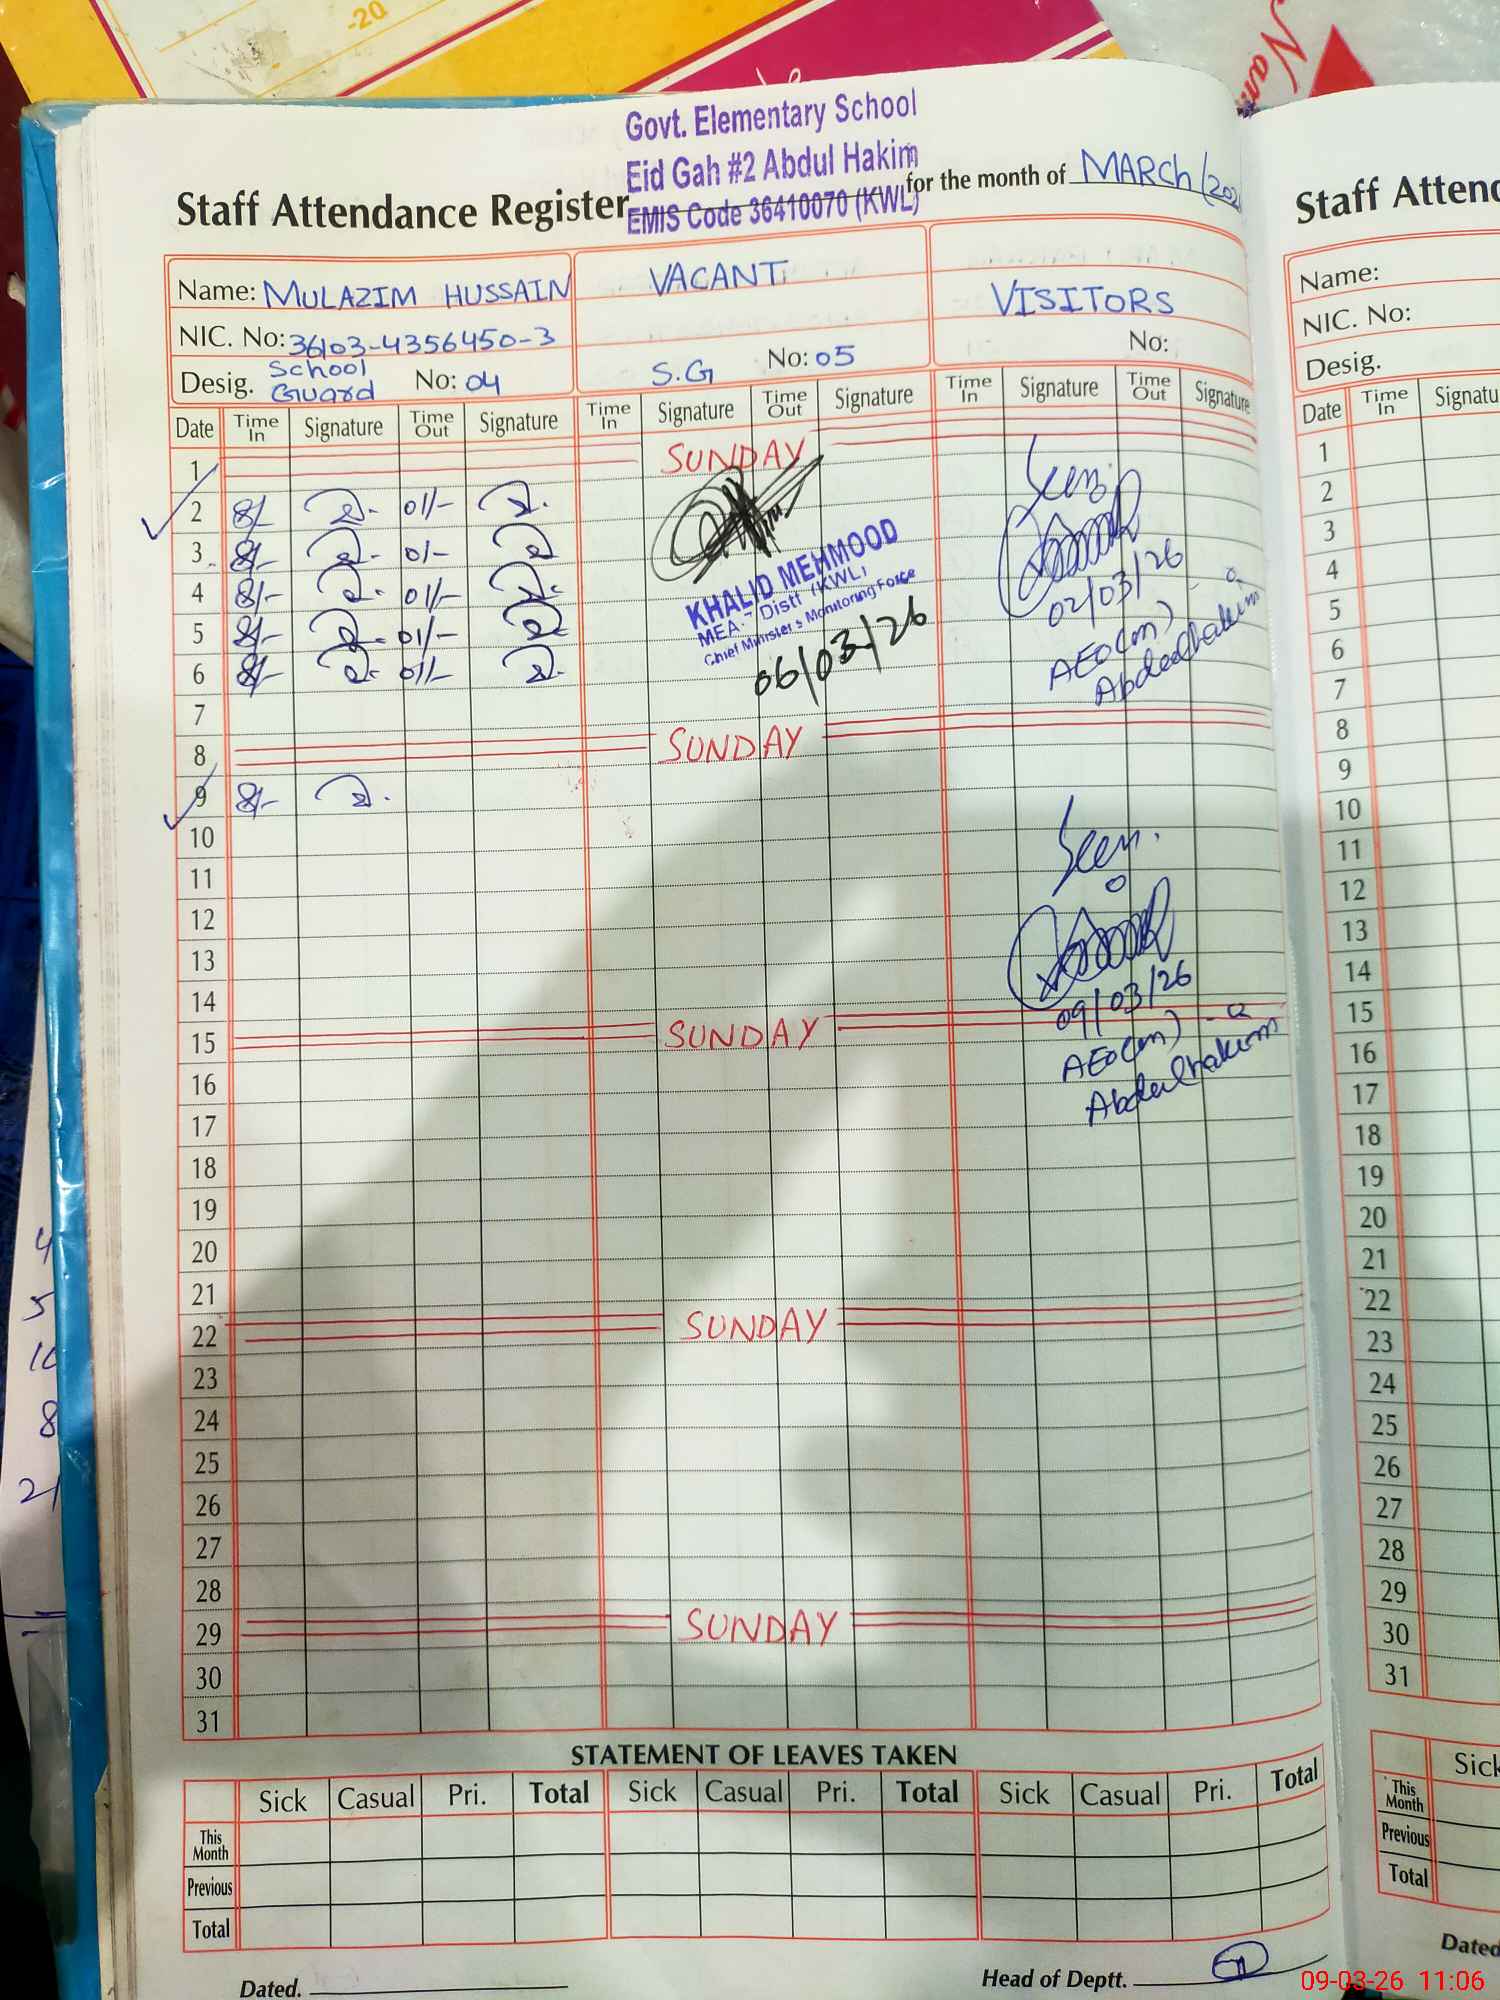 -20
Nan
Govt. Elementary School
Eid Gah #2 Abdul Hakim
EMIS Code 36410070 (KWL)
Staff Attendance Register
for the month of MARCH/202
Name: MULAZIM HUSSAIN
NIC. No: 36103-4356450-3
Desig. School Guard No: 04
VACANT
S.G No: 05
VISITORS
No:
Date Time In Signature Time Out Signature Time In Signature Time Out Signature Time In Signature Time Out Signature
1 SUNDAY
2 8/- 01/-
3 8/- 01/-
4 8/- 01/-
5 8/- 01/-
6 8/- 01/-
7
8 SUNDAY
9 8/-
10
11
12
13
14
15 SUNDAY
16
17
18
19
20
21
22 SUNDAY
23
24
25
26
27
28
29 SUNDAY
30
31
KHALID MEHMOOD
MEA-7 Distt (KWL)
Chief Minister's Monitoring Force
06/03/26
Seen.
02/03/26
AEO(m)
Abdulhakim
Seen.
09/03/26
AEO(m)
Abdulhakim
STATEMENT OF LEAVES TAKEN
Sick Casual Pri. Total Sick Casual Pri. Total Sick Casual Pri. Total
This Month
Previous
Total
Dated.
Head of Deptt.
Staff Atten
Name:
NIC. No:
Desig.
Date Time In Signatu
1
2
3
4
5
6
7
8
9
10
11
12
13
14
15
16
17
18
19
20
21
22
23
24
25
26
27
28
29
30
31
Sick
This Month
Previous
Total
Dated
4
5
10
8
21
09-03-26 11:06